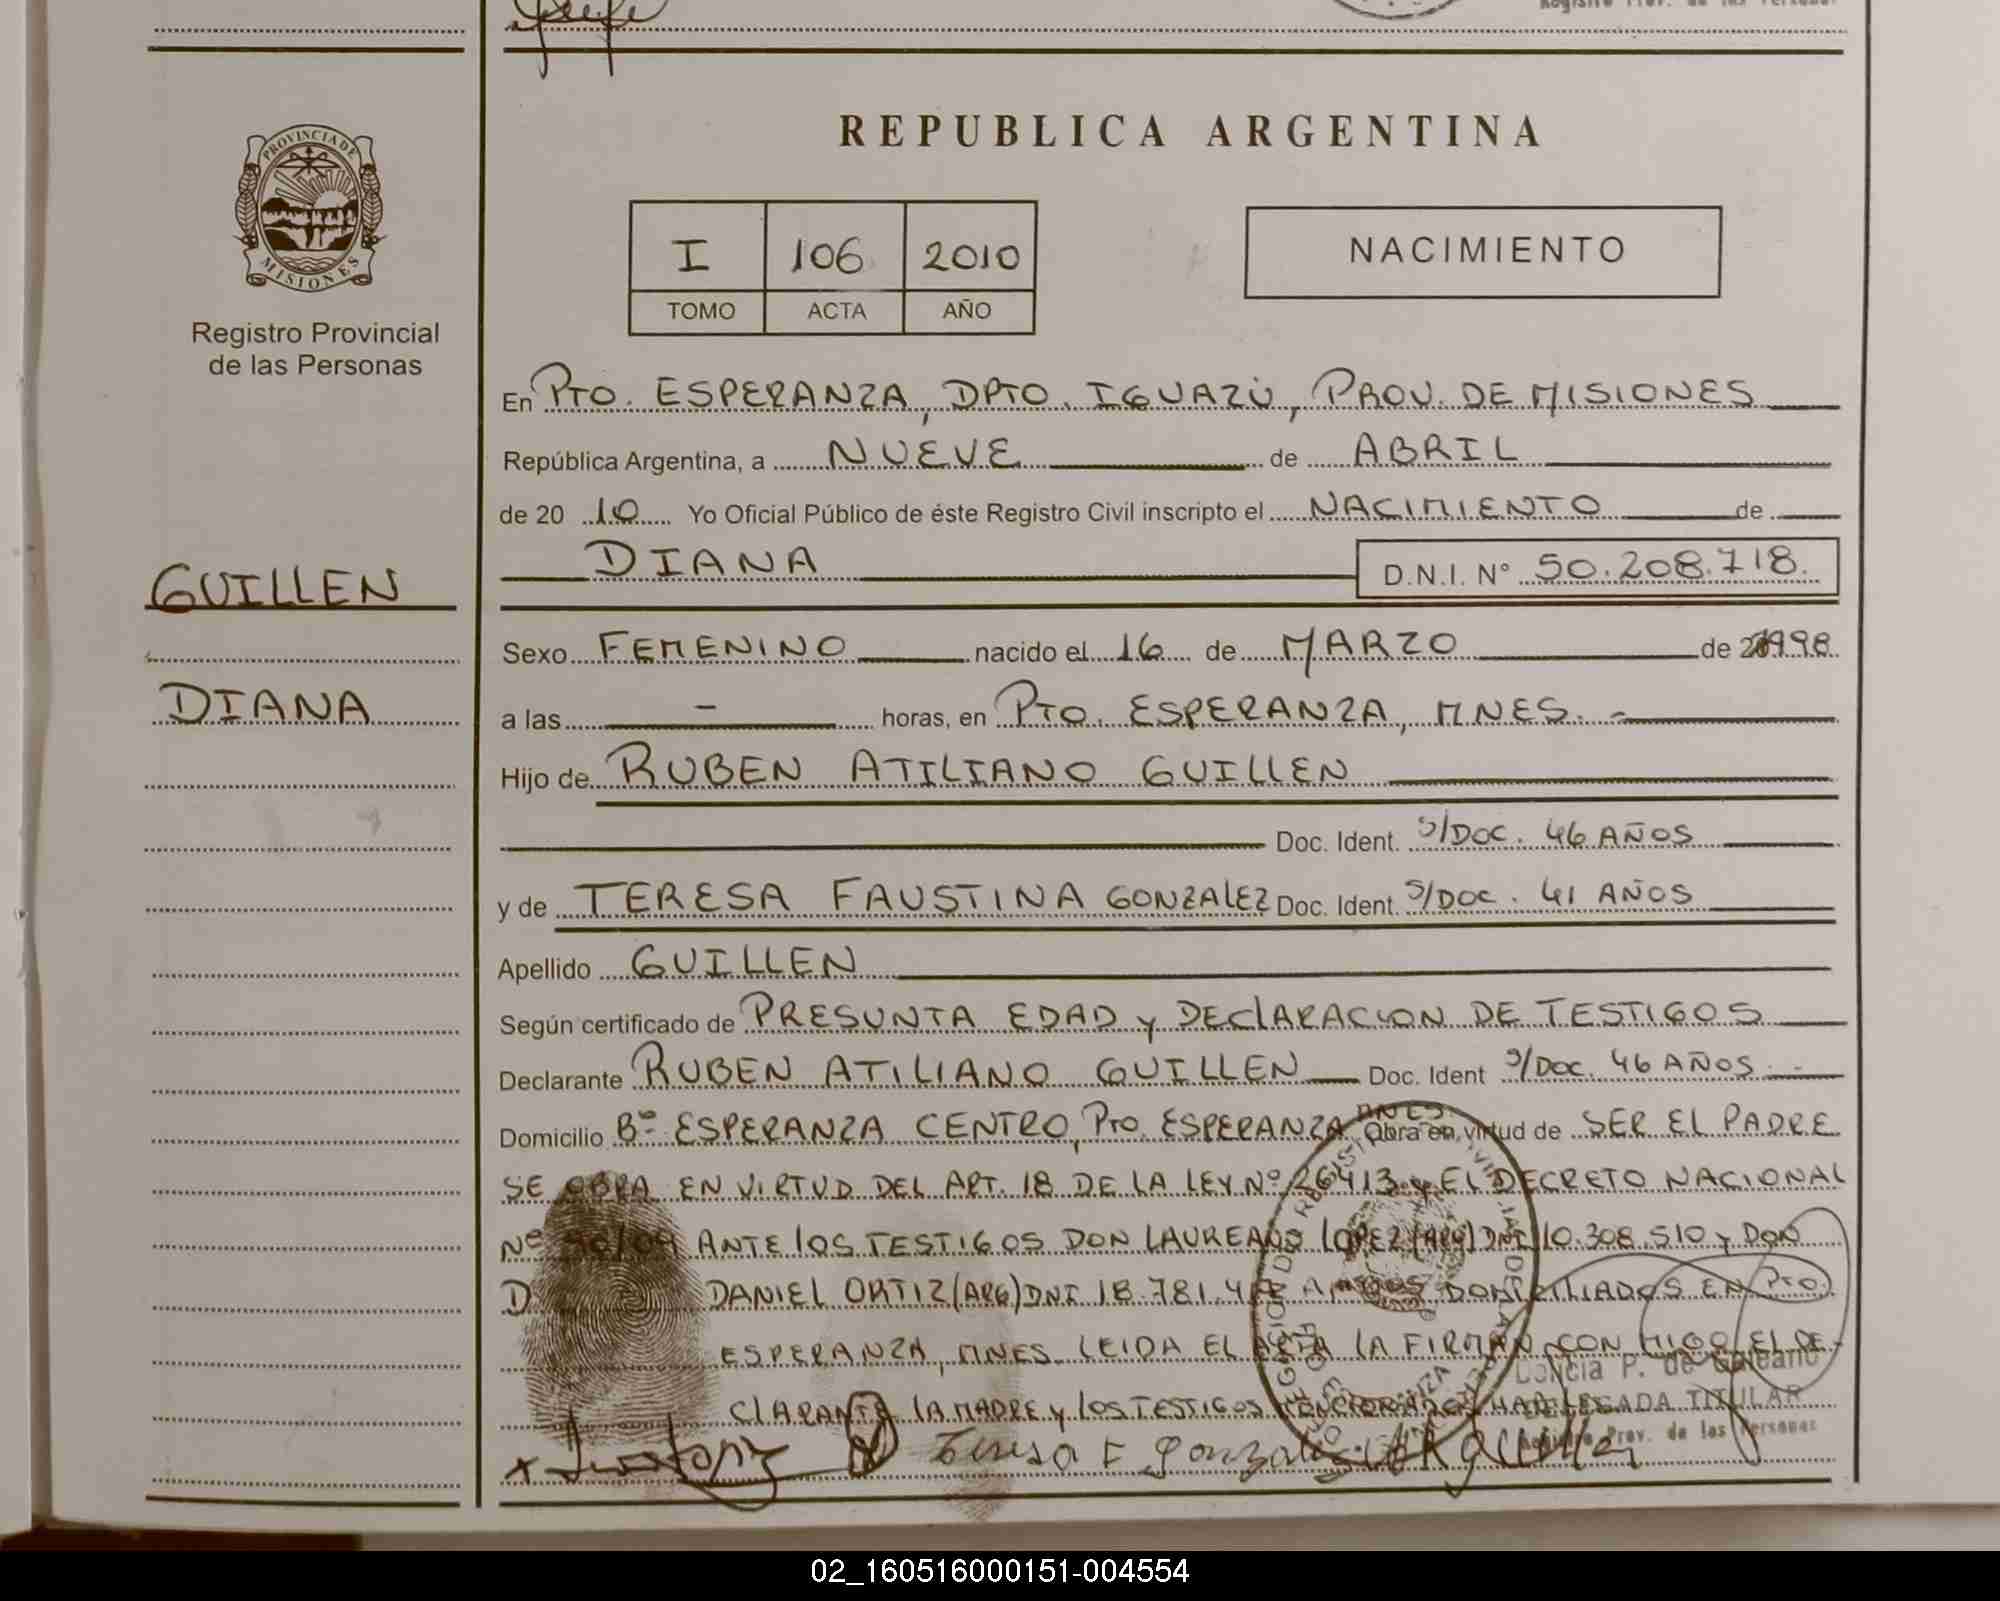 REPUBLICA ARGENTINA
PROVINCIA DE
MISIONES
Registro Provincial
de las Personas
I 106 2010
TOMO ACTA AÑO
NACIMIENTO
En PTO. ESPERANZA, DPTO. IGUAZÚ, PROV. DE MISIONES
República Argentina, a NUEVE de ABRIL
de 20 10 Yo Oficial Público de éste Registro Civil inscripto el NACIMIENTO de
DIANA D.N.I. N° 50.208.718.
GUILLEN
DIANA
Sexo FEMENINO nacido el 16 de MARZO de 1998
a las - horas, en PTO. ESPERANZA, MNES. -
Hijo de RUBEN ATILIANO GUILLEN
Doc. Ident. S/DOC. 46 AÑOS
y de TERESA FAUSTINA GONZALEZ Doc. Ident. S/DOC. 41 AÑOS
Apellido GUILLEN
Según certificado de PRESUNTA EDAD y DECLARACION DE TESTIGOS
Declarante RUBEN ATILIANO GUILLEN Doc. Ident S/DOC. 46 AÑOS -
Domicilio B° ESPERANZA CENTRO, PTO. ESPERANZA MNES. Obra en virtud de SER EL PADRE
SE OBRA EN VIRTUD DEL ART. 18 DE LA LEY N° 26413 y EL DECRETO NACIONAL
N° ANTE LOS TESTIGOS DON LAUREANO LOPEZ (ARG) DNI 10.308.510 y DON
DANIEL ORTIZ (ARG) DNI 18.781. DOMICILIADOS EN PTO.
ESPERANZA, MNES. LEIDA EL ACTA LA FIRMAN CON MIGO EL DE-
CLARANTE LA MADRE y LOS TESTIGOS
P. de Galeano
DELEGADA TITULAR
Prov. de las Personas
Teresa F Gonzalez
02_160516000151-004554